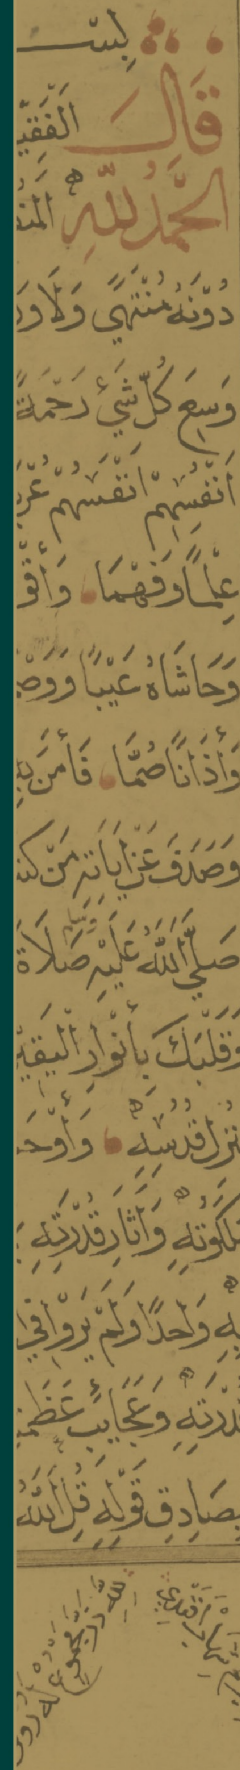 بسـ
قَالَ الْفَقِيـ
الْحَمْدُ لِلّٰهِ الْمُنْفَـ
دُوْنَهُ مُنْتَهًى وَلَا وَرَ
وَسِعَ كُلَّ شَيْءٍ رَحْمَةً
أَنْفَسِهِمْ أَنْفُسِهِمْ عُرْبًا
عِلْمًا وَفَهْمًا وَأَقْوَ
وَحَاشَاهُ عَيْبًا وَوَصْـ
وَأٰذَانًا صُمًّا فَأٰمَنَ بِهِ
وَصَدَفَ عَنْ أٰيَاتِهِ مَنْ كَتَـ
صَلَّى اللّٰهُ عَلَيْهِ وَسَلَّمَ صَلَاةً
وَقَلْبَكَ بِأَنْوَارِ الْيَقِيْـ
نُزُلِ قُدُسِهِ وَأَوْحَـ
مَلَكُوْتِهِ وَأٰثَارِ قُدْرَتِهِ
بِهِ وَاحِدًا وَلَمْ يَرَوْا فِي
قُدْرَتِهِ وَعَجَائِبِ عَظَمَـ
بِصَادِقِ قَوْلِهِ قُلِ اللّٰهُ